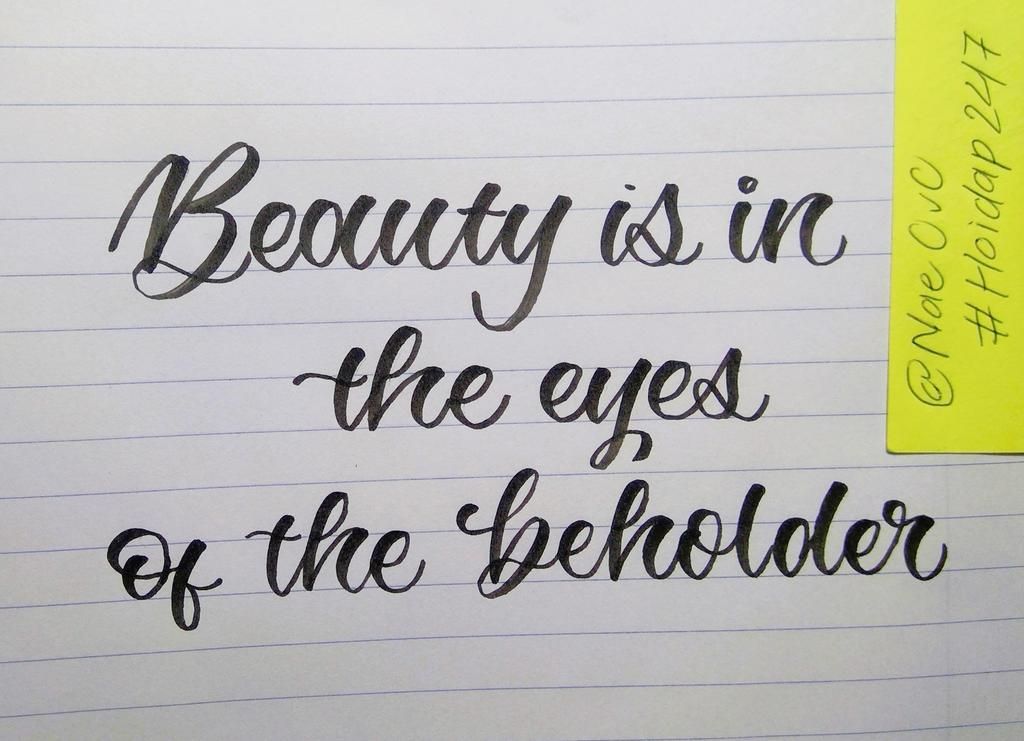 Beauty is in
the eyes
of the beholder
@Nae OvC
#Hoidap247